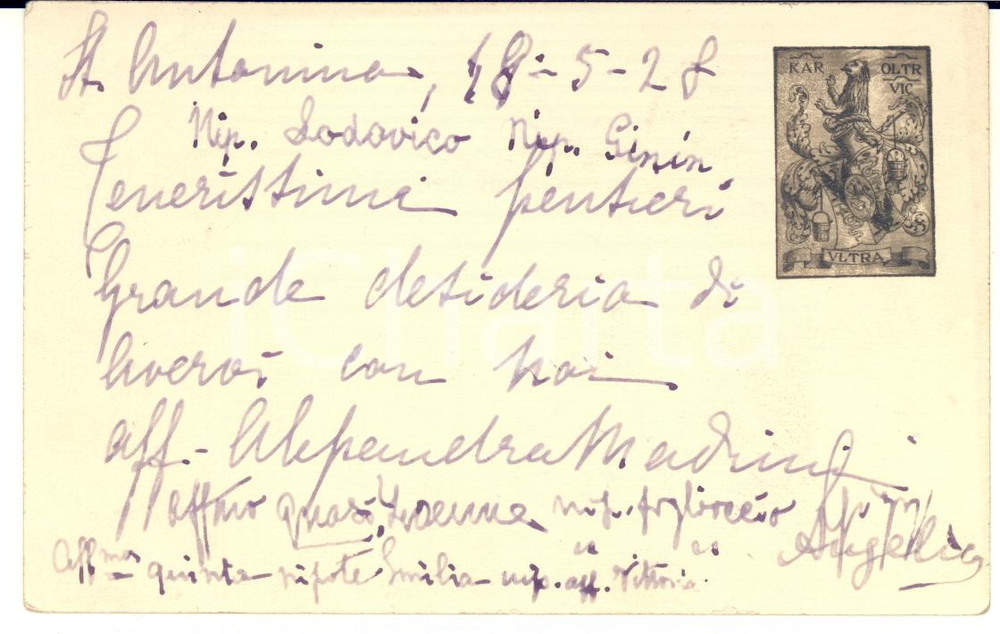 St. Antonino, 18-5-28
KAR OLTR
VIC
Nip. Lodovico Nip. Ginin
Tenerissimi pensieri
VLTRA
Grande desiderio di
averVi con noi
aff. Alessandra
affmo quasi nip. figlioccio
Angelica
Aff.ma quinta nipote Emilia nip. aff. Vittoria
iCharta